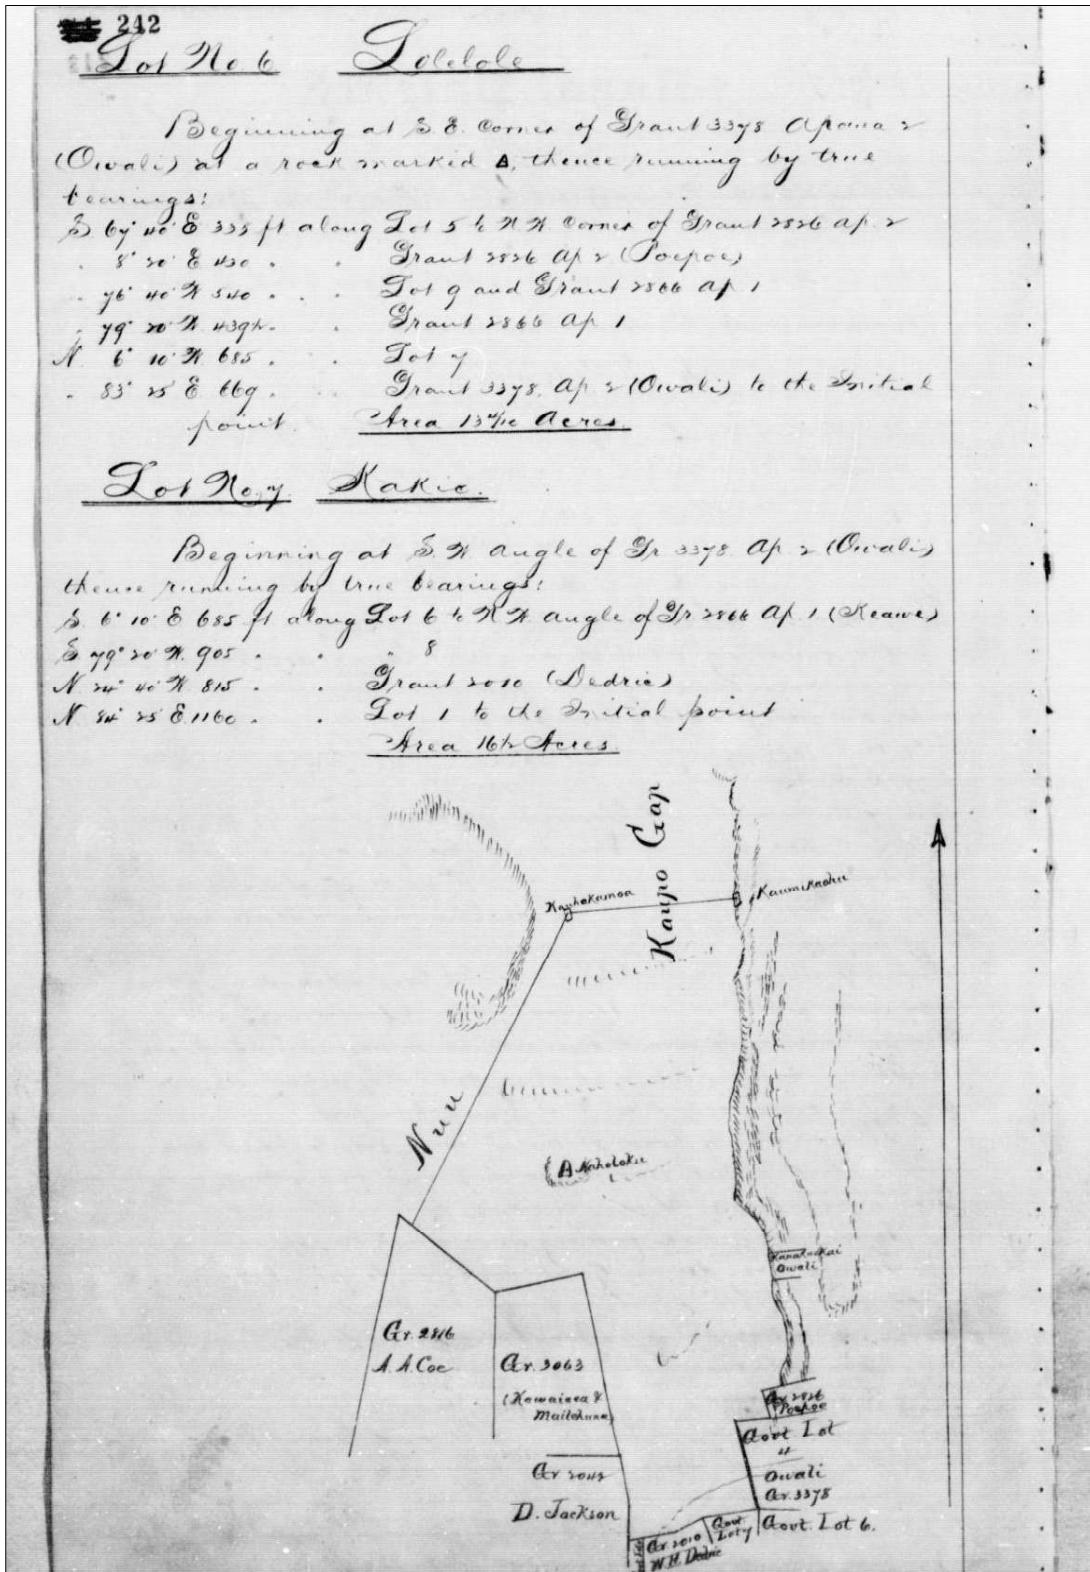 242
Lot No 6 Lolelole
Beginning at S. E. Corner of Grant 3378 Apana 2
(Owali) at a rock marked Δ, thence running by true
bearings:
S. 67° 40' E 335 ft along Lot 5 to N. W. Corner of Grant 2826 Ap. 2
. 8° 20' E 430 . . Grant 2826 Ap 2 (Poepoe)
. 76° 40' W 540 . . Lot 9 and Grant 2866 Ap 1
. 79° 20' W 439½ . . Grant 2866 Ap 1
N 6° 10' W 685 . . Lot 7
. 83° 25' E 669 . . Grant 3378, Ap. 2 (Owali) to the Initial
point. Area Acres.
Lot No. 7 Kakio.
Beginning at S. W angle of Gr 3378 Ap. 2 (Owali)
thence running by true bearings:
S. 6° 10' E 685 ft along Lot 6 to N. W. angle of Gr 2866 Ap. 1 (Keawe)
S 79° 20' W. 905 . . " 8
N. 24° 40' W. 815 . . Grant 2010 (Dedric)
N. 84° 25' E. 1160 . . Lot 1 to the Initial point
Area 16½ Acres.
Kaupo Gap
Kauhokamoa
Kaumikaohu
Nuu
Δ Naholoku
Kanakaokai
Owali
Gr. 2816
A. A. Coe
Gr. 3063
(Kawaieea &
Mailehuna)
Gr 2826
Poepoe
Govt Lot
4
Owali
Gr. 3378
Gr 2042
D. Jackson
Govt.
Lot 7
Govt. Lot 6.
Gr. 2010
W. H. Dedric